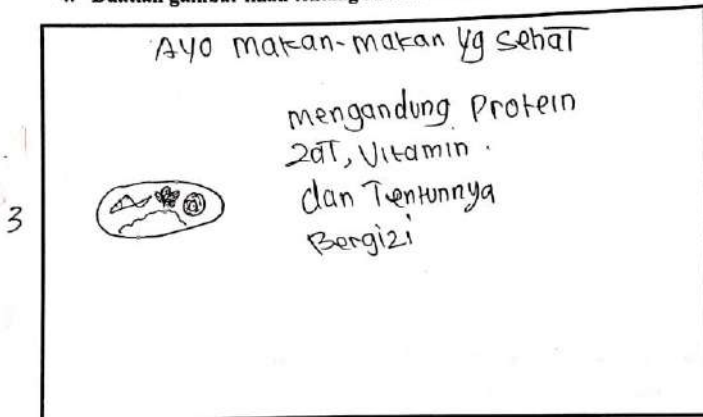 Ayo makan-makan yg sehat
mengandung Protein
zat, Vitamin.
dan Tentunnya
Bergizi
3